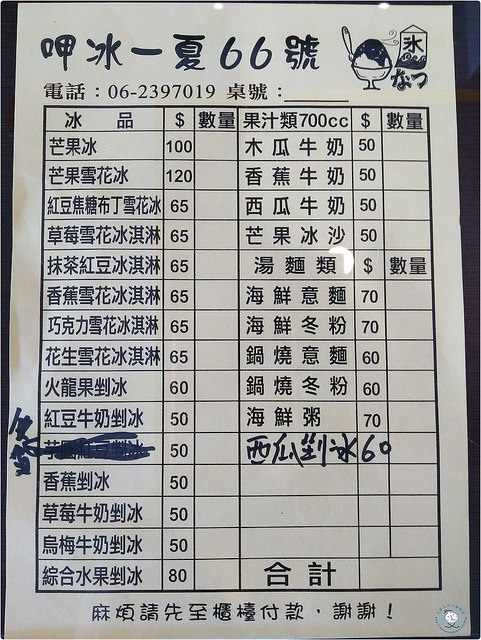 呷冰一夏66號
氷
なつ
電話：06-2397019 桌號：
冰品 $ 數量 果汁類700cc $ 數量
芒果冰 100 木瓜牛奶 50
芒果雪花冰 120 香蕉牛奶 50
紅豆焦糖布丁雪花冰 65 西瓜牛奶 50
草莓雪花冰淇淋 65 芒果冰沙 50
抹茶紅豆冰淇淋 65 湯麵類 $ 數量
香蕉雪花冰淇淋 65 海鮮意麵 70
巧克力雪花冰淇淋 65 海鮮冬粉 70
花生雪花冰淇淋 65 鍋燒意麵 60
火龍果剉冰 60 鍋燒冬粉 60
紅豆牛奶剉冰 50 海鮮粥 70
50 西瓜剉冰60
香蕉剉冰 50
草莓牛奶剉冰 50
烏梅牛奶剉冰 50
綜合水果剉冰 80 合計
麻煩請先至櫃檯付款，謝謝！